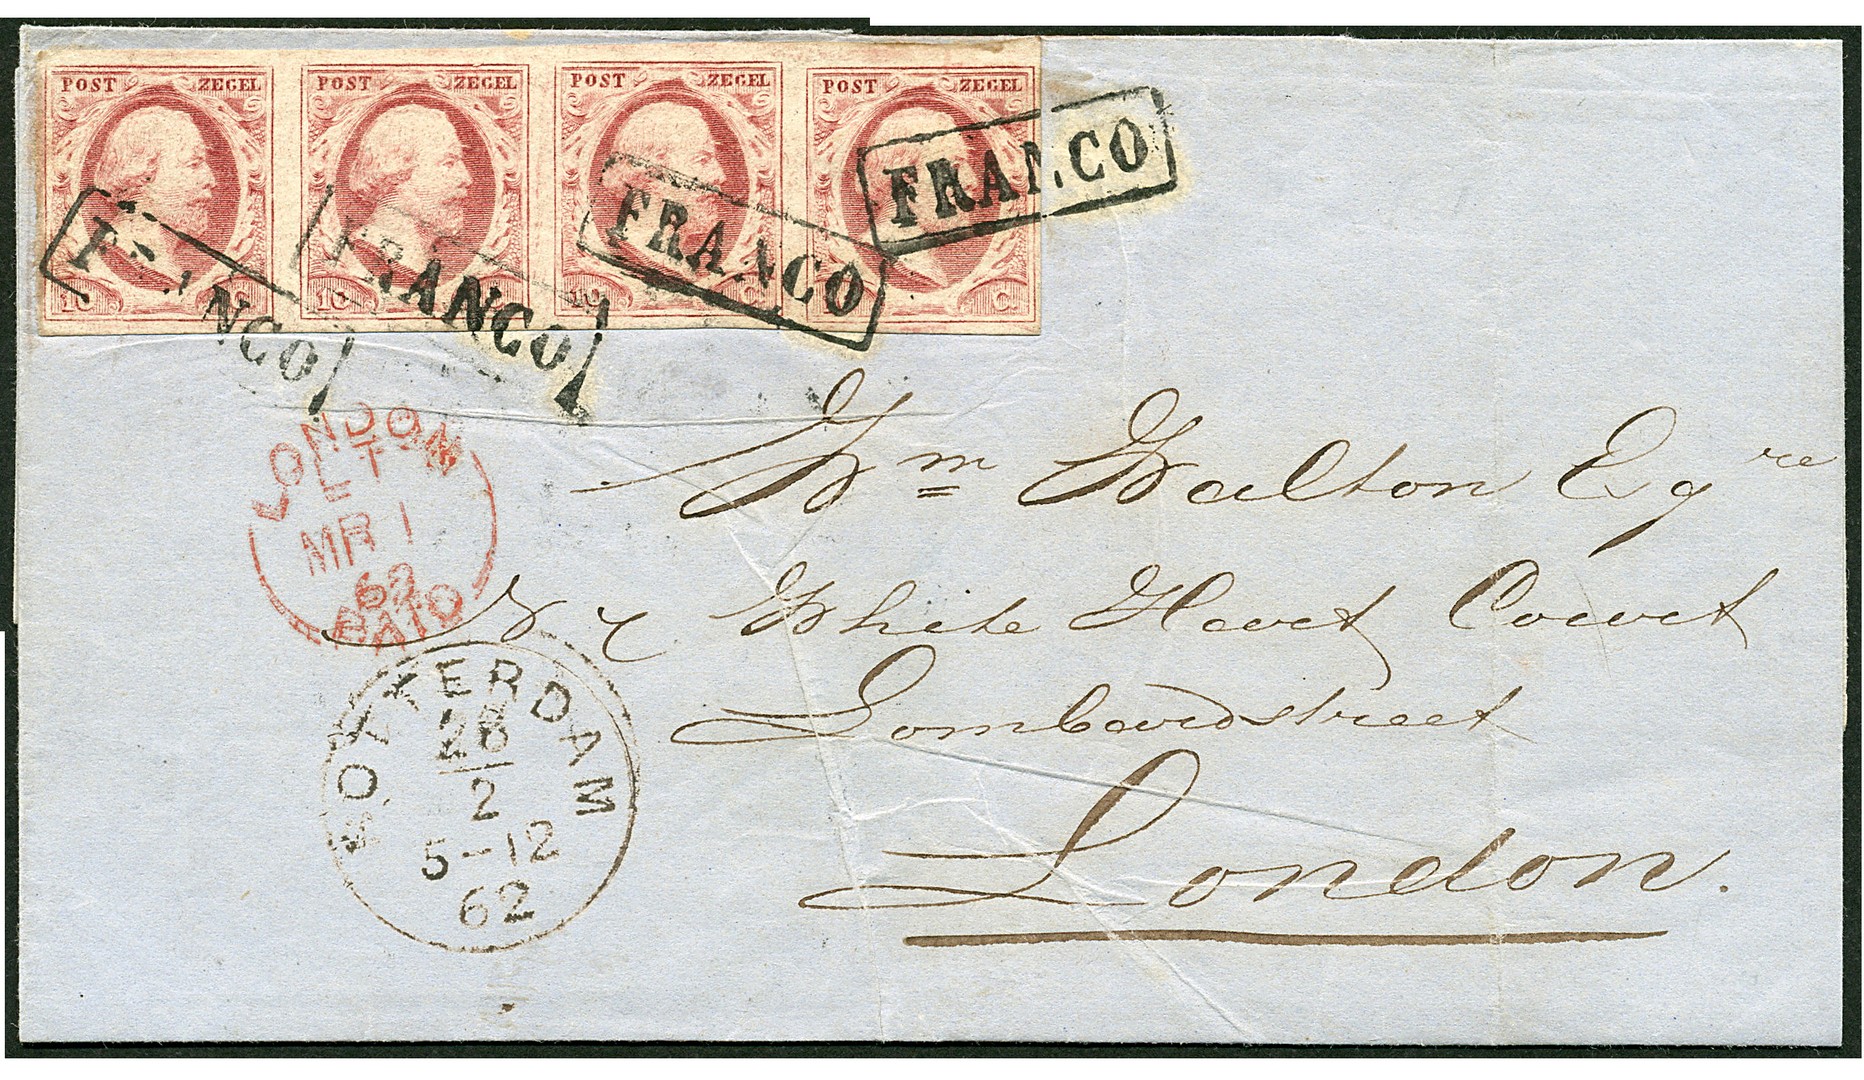 POST ZEGEL POST ZEGEL POST ZEGEL POST ZEGEL
10 10 10 C. C.
FRANCO FRANCO FRANCO FRANCO
LONDON
MR 1
62
PAID
ROTTERDAM
28
2
5-12
62
Wm Walton Esqre
White Hart Court
Lombardstreet
London.